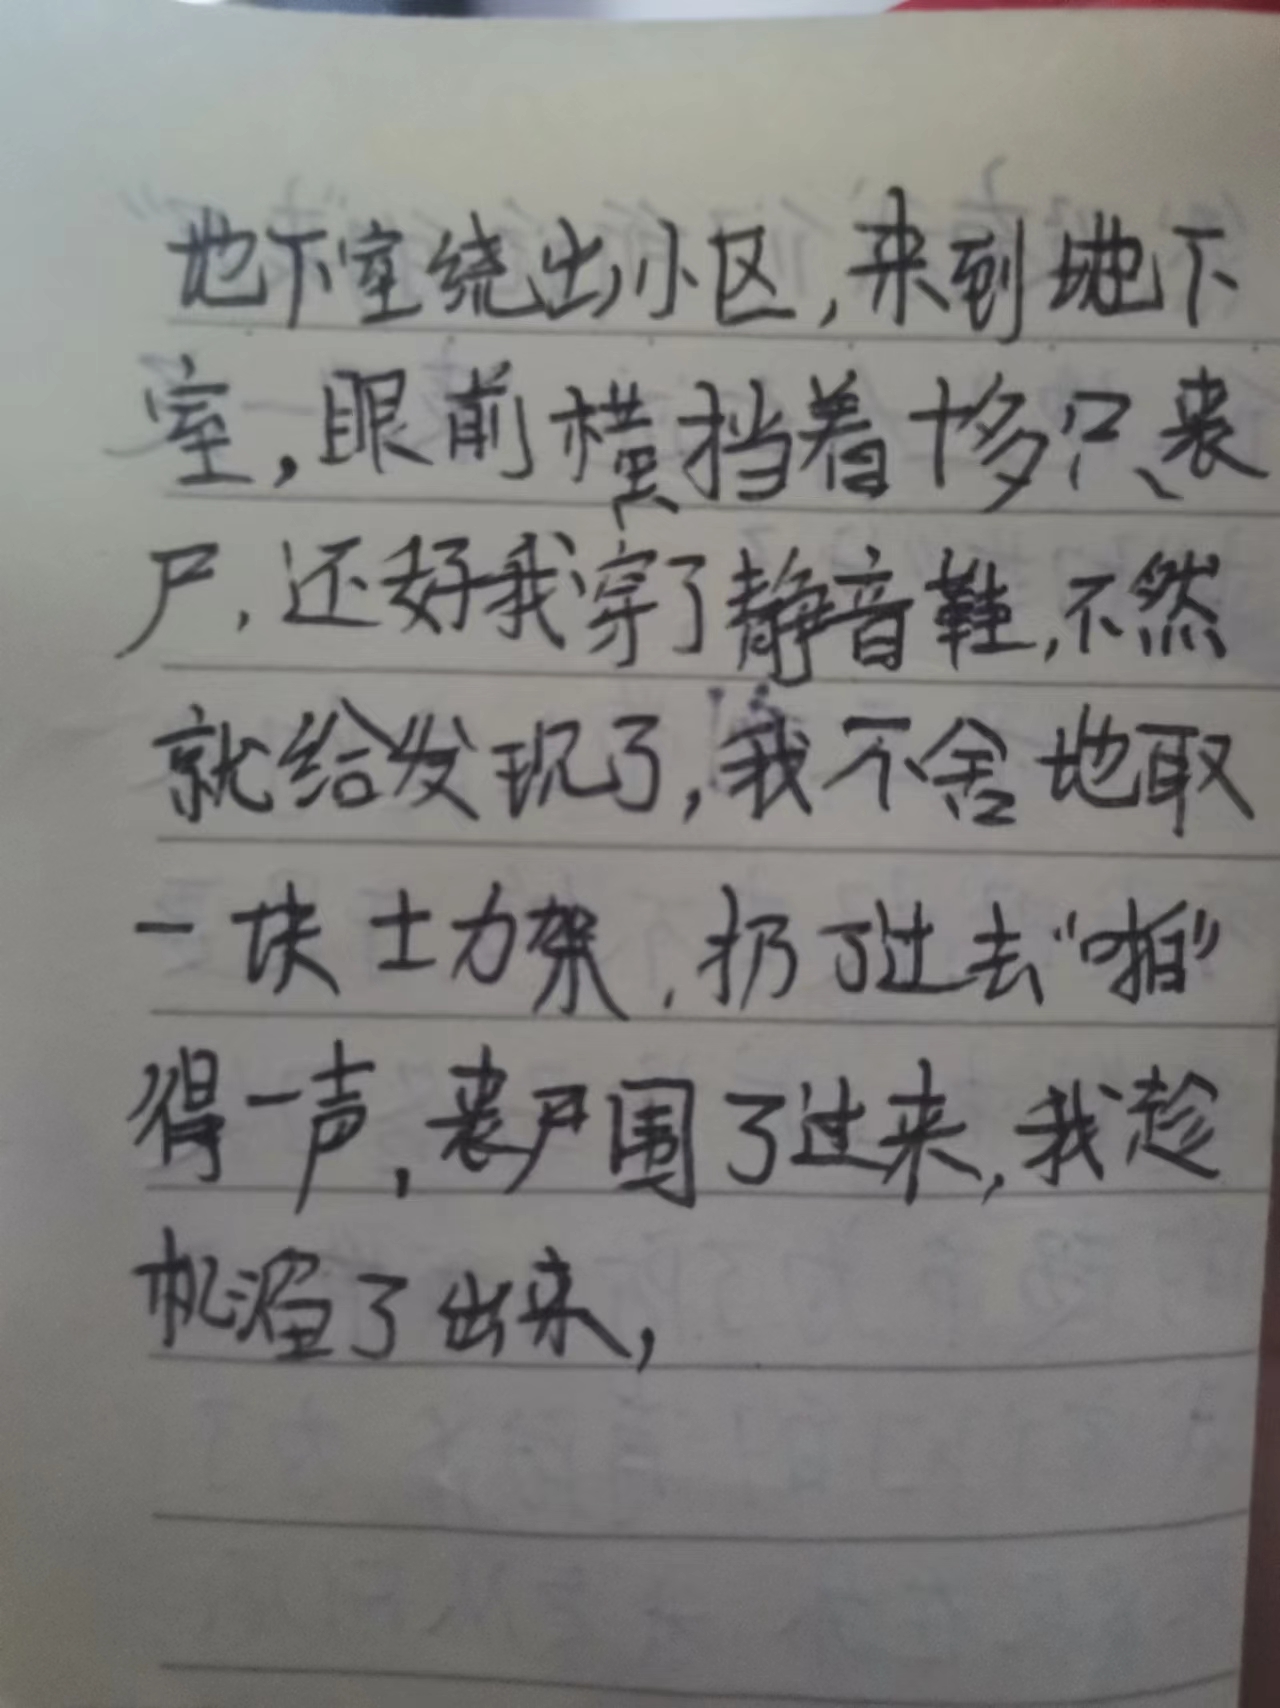 地下室绕出小区,来到地下
室,眼前横挡着十多只丧
尸,还好我穿了静音鞋,不然
就给发现了,我不舍地取
一块士力架,扔了过去“啪”
得一声,丧尸围了过来,我趁
机溜了出来,